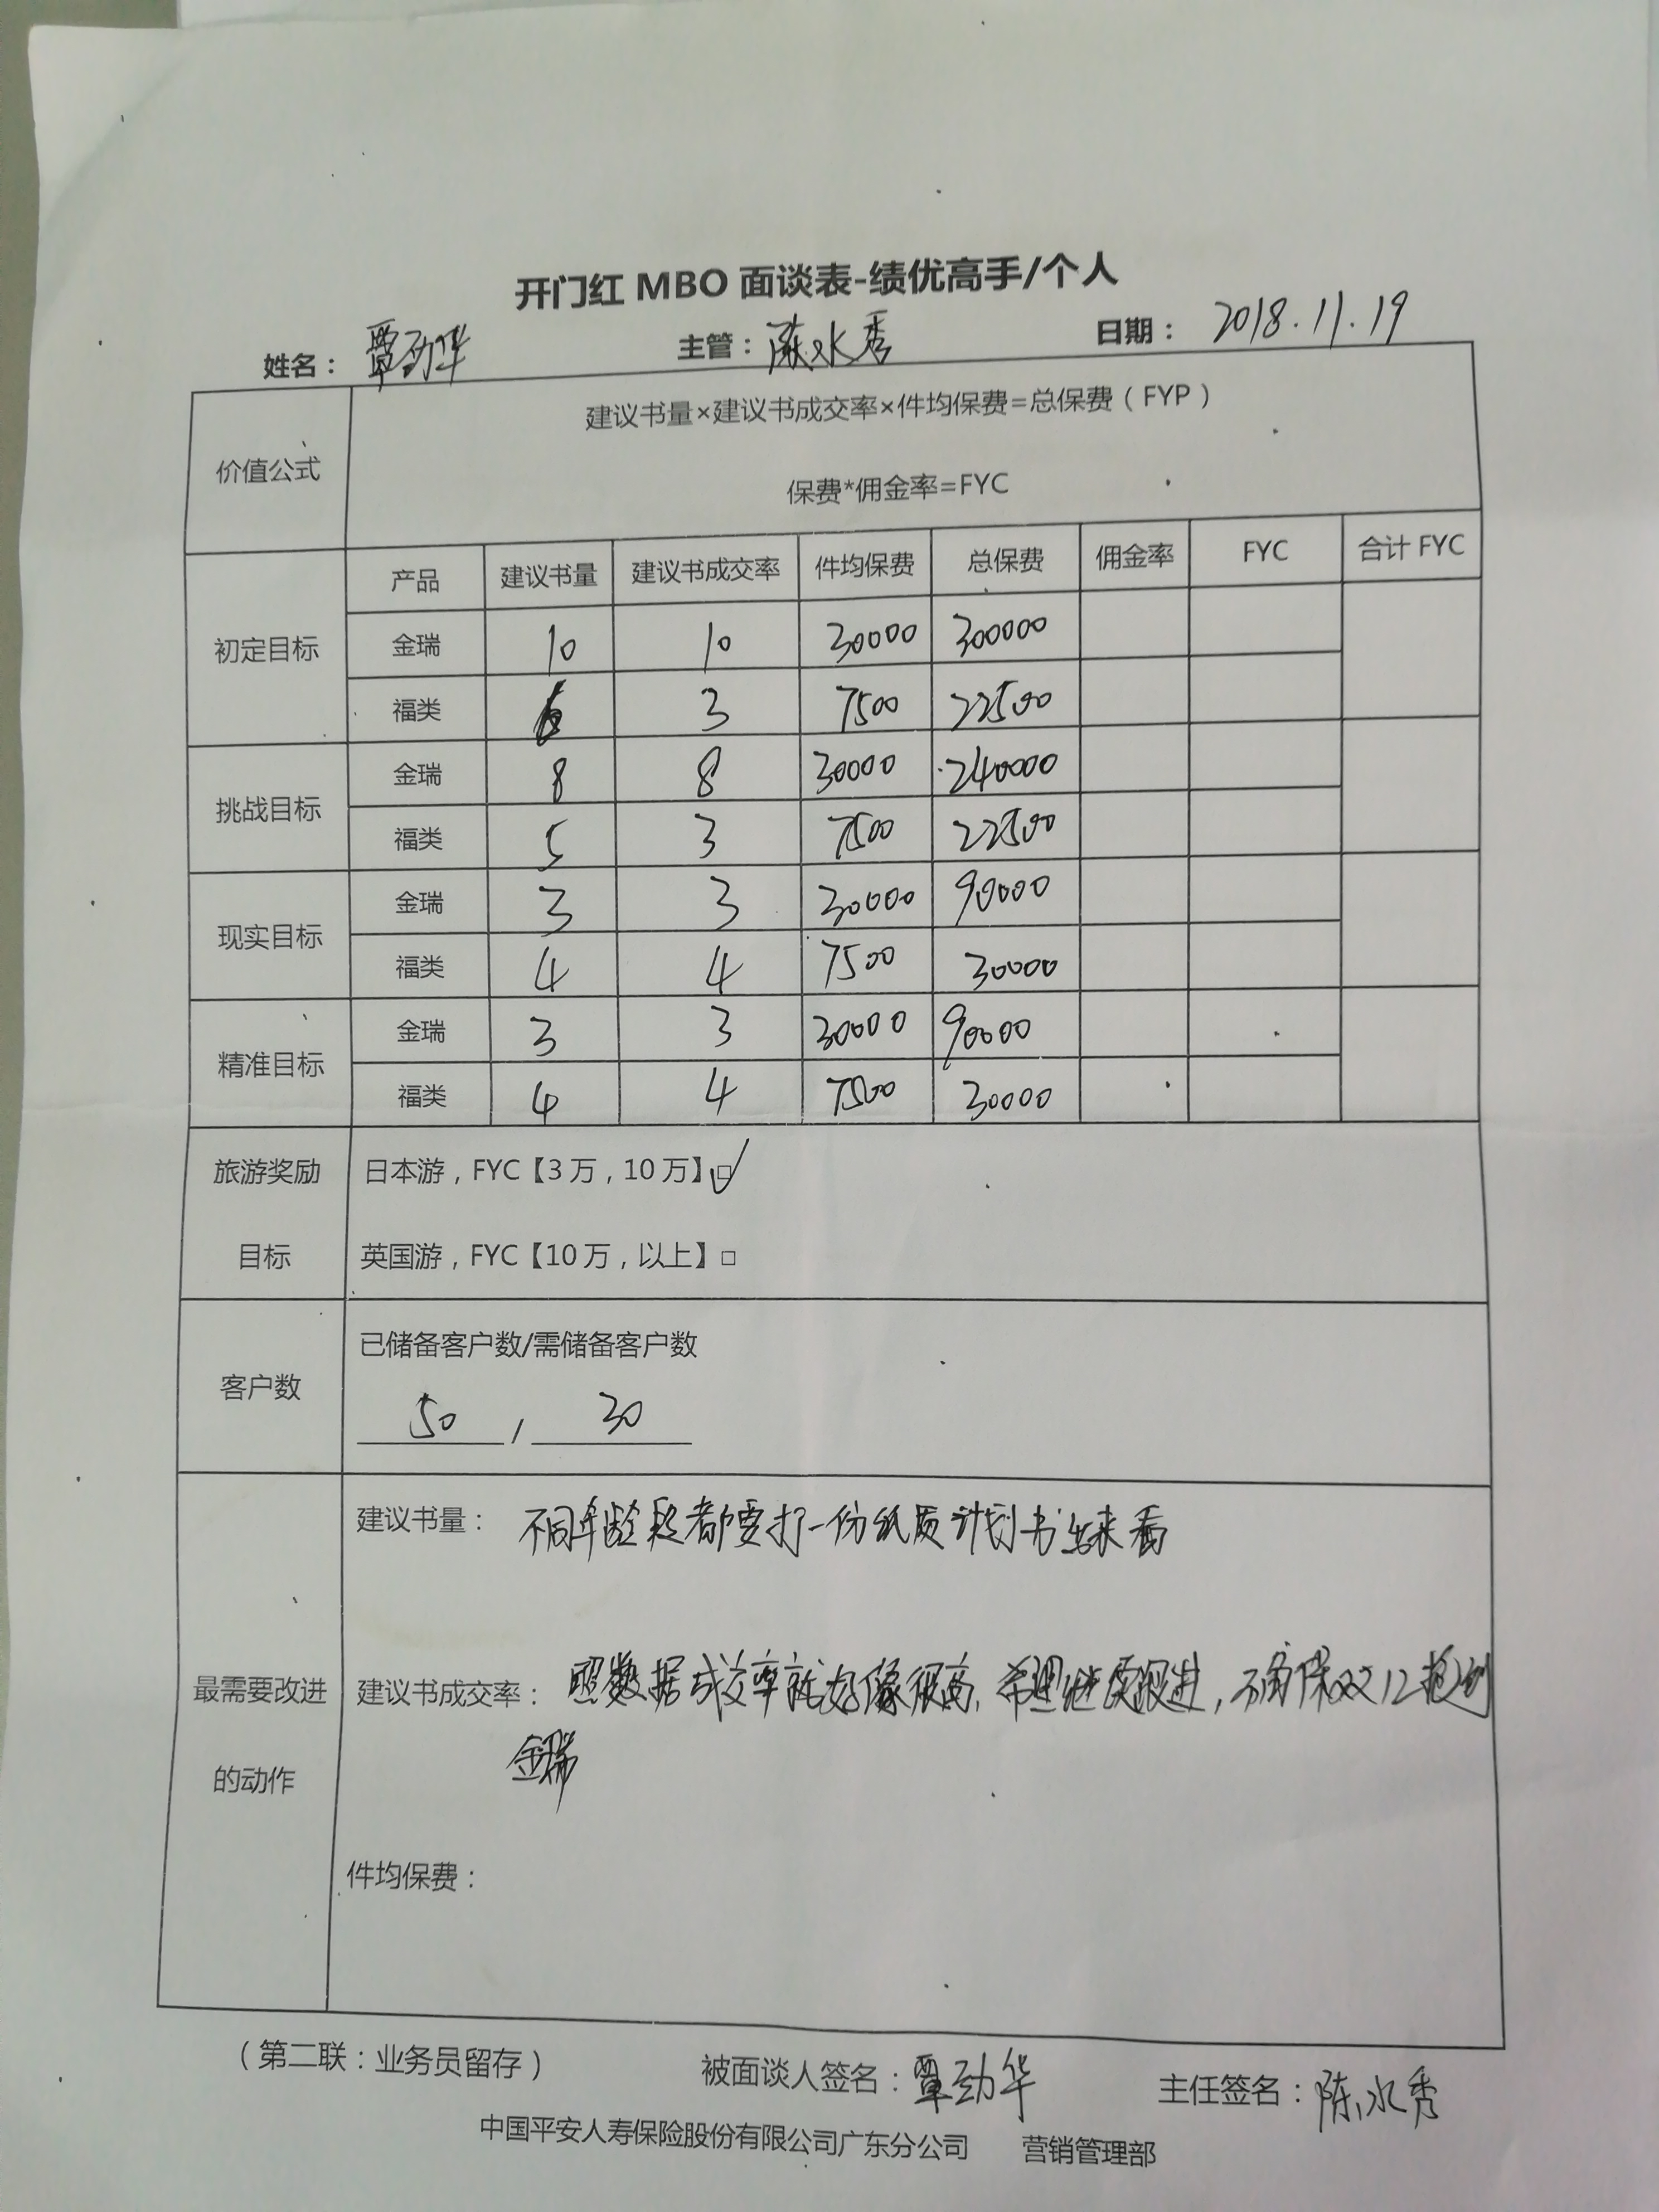 开门红 MBO 面谈表-绩优高手/个人
姓名：覃劲华 主管：陈水秀 日期：2018.11.19
价值公式
建议书量×建议书成交率×件均保费=总保费（FYP）
保费*佣金率=FYC
初定目标
产品 建议书量 建议书成交率 件均保费 总保费 佣金率 FYC 合计 FYC
金瑞 10 10 30000 300000
福类 3 7500 22500
挑战目标
金瑞 8 8 30000 240000
福类 5 3 7500 22500
现实目标
金瑞 3 3 30000 90000
福类 4 4 7500 30000
精准目标
金瑞 3 3 30000 90000
福类 4 4 7500 30000
旅游奖励
目标
日本游，FYC【3 万，10 万】□✓
英国游，FYC【10 万，以上】□
客户数
已储备客户数/需储备客户数
50 / 30
最需要改进
的动作
建议书量：不同年龄段都要打一份纸质计划书出来看
建议书成交率：照数据成交率就好像很高，希望继续跟进，确保双12抢到
金瑞
件均保费：
（第二联：业务员留存） 被面谈人签名：覃劲华 主任签名：陈水秀
中国平安人寿保险股份有限公司广东分公司 营销管理部